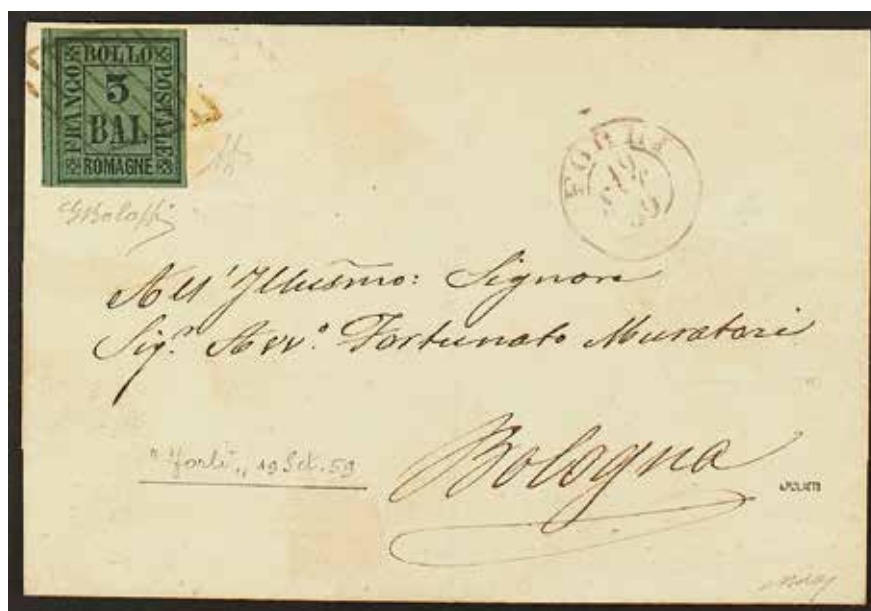 BOLLO
FRANCO
3
BAL
POSTALE
ROMAGNE
GBolaffi
FORLI
19
SET
59
All' Illusmo: Signore
Sig.r Avv.o Fortunato Muratori
Bologna
"Forlì„ 19 Set. 59